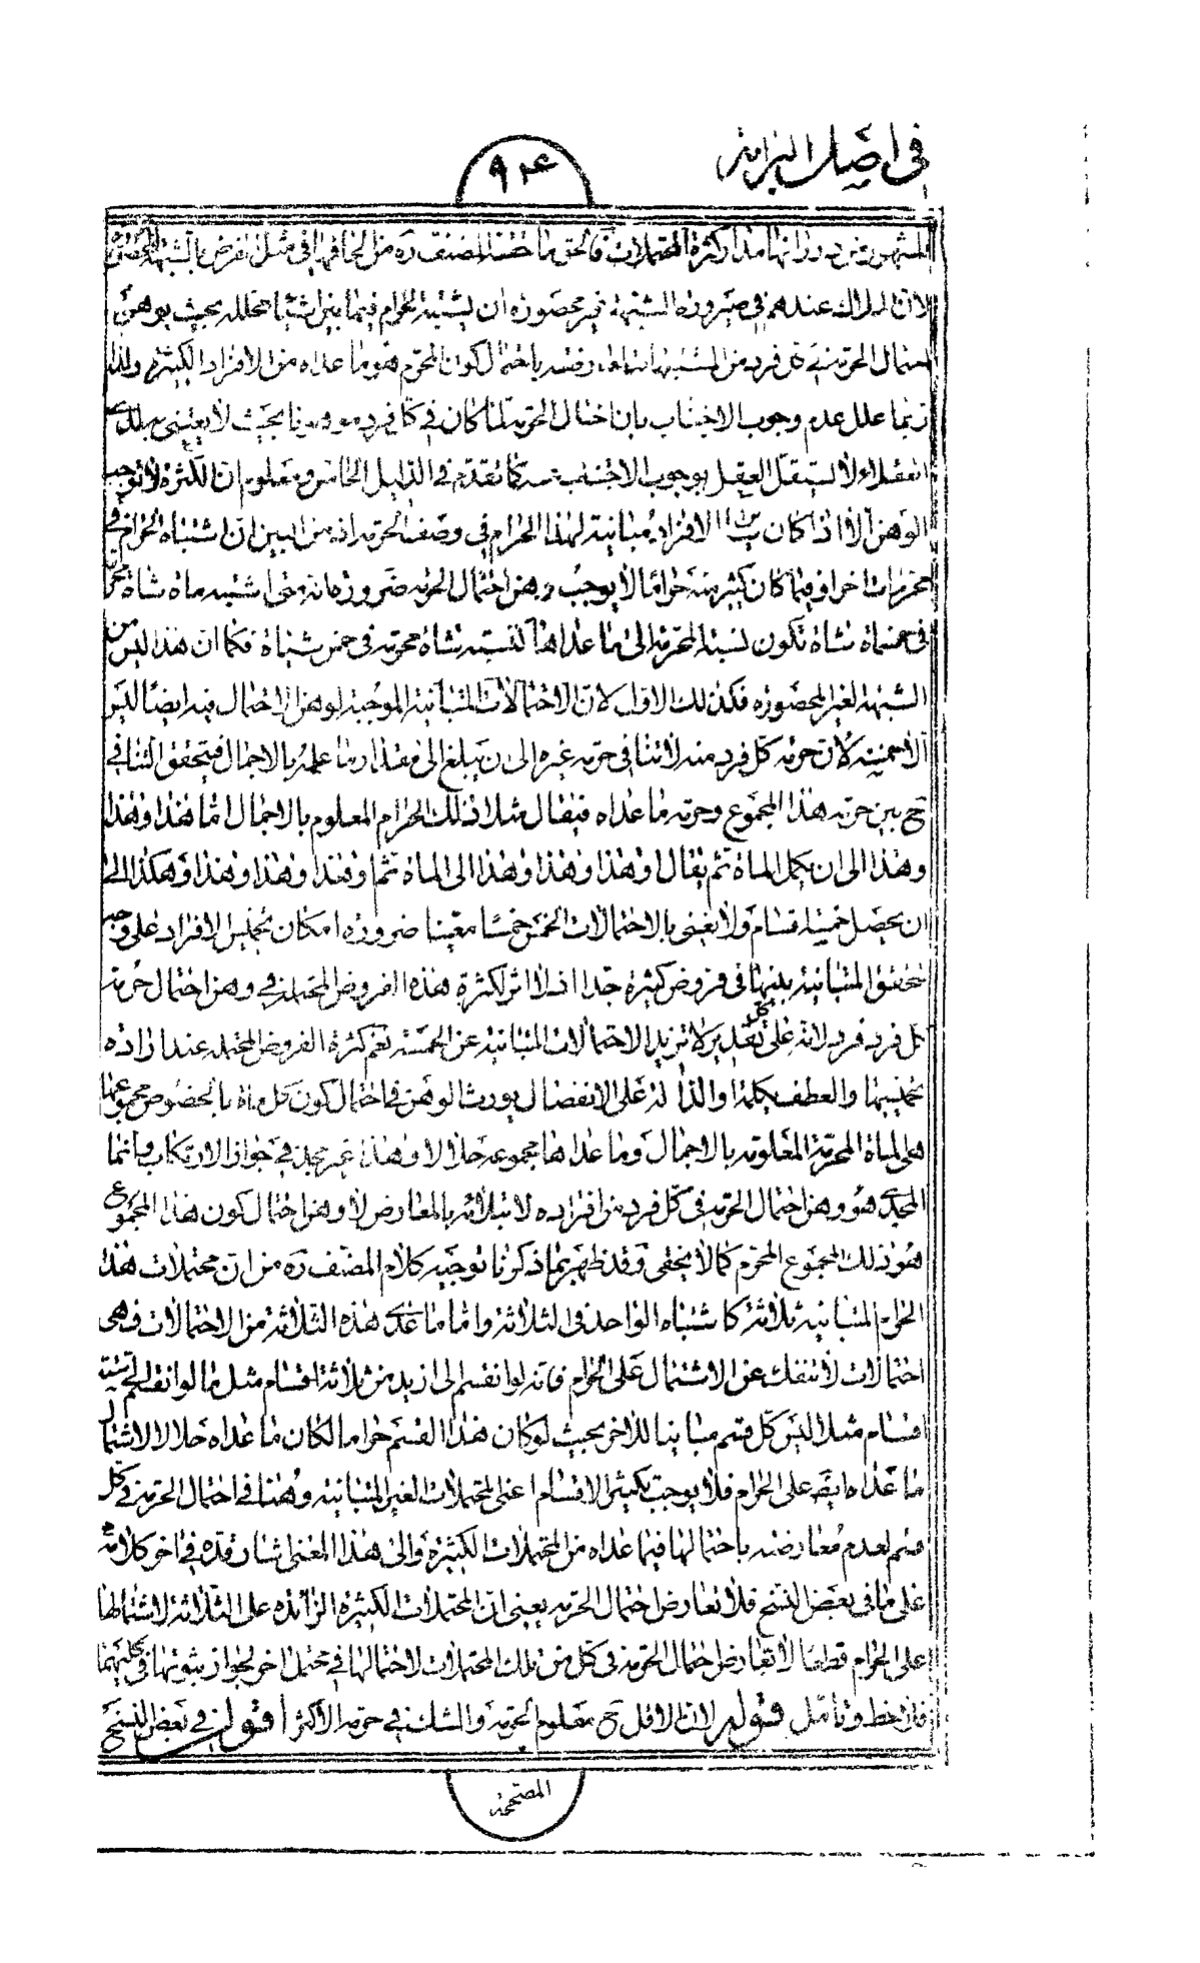 في اصل البرائة
٩٢٤
المشهور من دورانها مدار كثرة المحتملات فالحق ما حققه المصنف ره من الحاقها في مثل الفرض بالشبهة المحصورة
لان المدرك عندهم في صيرورة الشبهة غير محصورة ان يشتبه الحرام فيما بين اشياء محللة بحيث يوهن
احتمال الحرمة في كل فرد من المشتبهات لمعارضته باحتمال كون المحرم هو ما عداه من الافراد الكثيرة ولذا
ربما علل عدم وجوب الاجتناب بان احتمال الحرمة لما كان في كل فرد موهونا بحيث لا يعتنى به لدى
العقلاء لا يستقل العقل بوجوب الاجتناب عنه كما تقدم في الدليل الخامس ومعلوم ان الكثرة لا توجب
الوهن الا اذا كان الافراد مباينة لهذا الحرام في وصف الحرمة اذ من البين ان اشتباه الحرام في
محرمات اخر او فيما كان كثير منه حراما لا يوجب وهن احتمال الحرمة ضرورة انه متى اشتبه مأة شاة محرمة
في خمسمأة شاة تكون نسبة المحرمة الى ما عداها كنسبة شاة محرمة في خمس شياة فكما ان هذا ليس من
الشبهة الغير المحصورة فكذلك الاول لان الاحتمالات المتباينة الموجبة لوهن الاحتمال فيه ايضا ليس
الا خمسة لان حرمة كل فرد منه لا تنافي حرمة غيره الى ان يبلغ الى مقدار ما علم بالاجمال فيتحقق التنافي
ح بين حرمة هذا المجموع وحرمة ما عداه فيقال مثلا ذلك الحرام المعلوم بالاجمال اما هذا وهذا
وهذا الى ان يكمل المأة ثم يقال او هذا وهذا وهذا الى المأة ثم او هذا وهذا وهذا وهكذا الى
ان يحصل خمسة اقسام ولا نعني بالاحتمالات الخمس خمسا معينا ضرورة امكان تخميس الافراد على وجه
تتحقق المتباينة بينها في فروض كثيرة جدا اذ لا اثر لكثرة هذه الفروض المختلفة في وهن احتمال حرمة
كل فرد فرد لانه على كل تقدير لا تزيد الاحتمالات المتباينة عن الخمسة نعم كثرة الفروض المحتملة عند ارادة
تخميسها والعطف بكلمة او الدالة على الانفصال يورث الوهن في احتمال كون كل مأة بالخصوص مجموعها
هي المأة المحرمة المعلومة بالاجمال وما عداها مجموعه حلالا وهذا غير مجد في جواز الارتكاب وانما
المجدي هو وهن احتمال الحرمة في كل فرد من افراده لابتلائه بالمعارض لا وهن احتمال كون هذا المجموع
هو ذلك المجموع المحرم كما لا يخفى وقد ظهر بما ذكرنا توجيه كلام المصنف ره من ان محتملات هذا
الحرام المتباينة ثلاثة كاشتباه الواحد في الثلاثة واما ما عدى هذه الثلاثة من الاحتمالات فهي
احتمالات لا تنفك عن الاشتمال على الحرام فانه لو انقسم الى ازيد من ثلاثة اقسام مثل ما لو انقسم الى ستة
اقسام مثلا ليس كل قسم مباينا للاخر بحيث لو كان هذا القسم حراما لكان ما عداه حلالا لاشتمال
ما عداه ايضا على الحرام فلا يوجب تكثير الاقسام اعني المحتملات الغير المتباينة وهنا في احتمال الحرمة في كل
قسم لعدم معارضته باحتمالها فيما عداه من المحتملات الكثيرة والى هذا المعنى اشار قده في اخر كلامه
على ما في بعض النسخ فلا تعارض احتمال الحرمة يعني ان المحتملات الكثيرة الزائدة على الثلاثة لاشتمالها
على الحرام قطعا لا تعارض احتمال الحرمة في كل من تلك المحتملات لاحتمالها في محتمل اخر لجواز ثبوتها في كليهما
فافهم وتأمل قوله لان الاقل ح معلوم الحرمة والشك في حرمة الاكثر اقول في بعض النسخ
المصححة